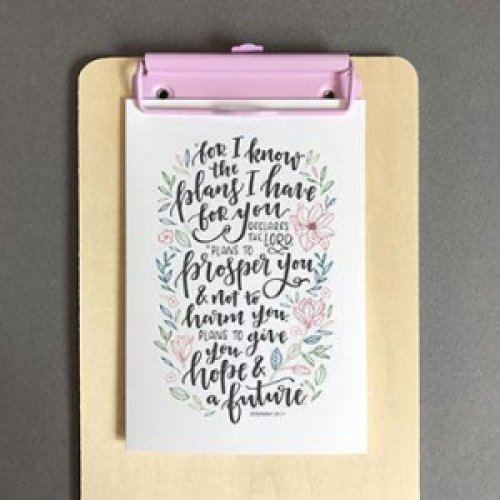 "for I know
the
plans I have
for you
DECLARES
THE LORD,
"PLANS TO
prosper you
& not to
harm you,
PLANS TO give
you
hope &
a future"
JEREMIAH 29:11